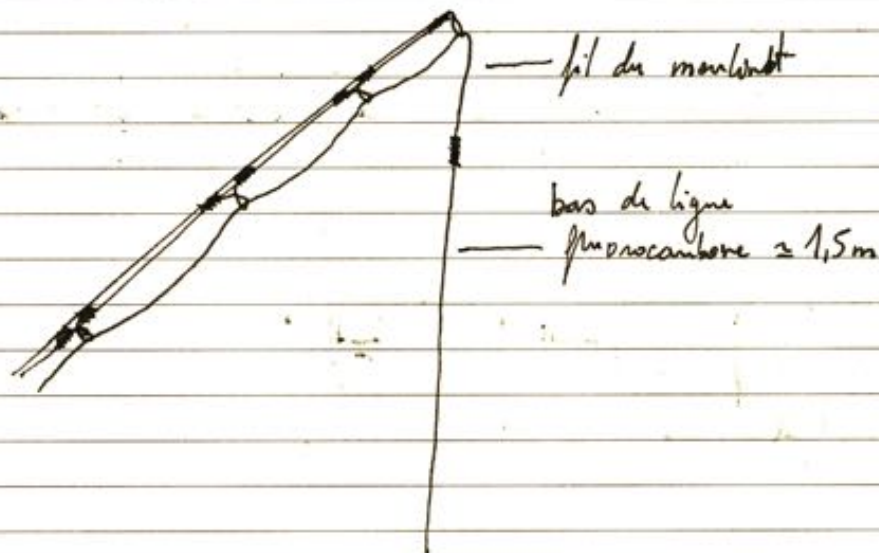 fil du moulinet
bas de ligne
fluorocarbone ≃ 1,5m